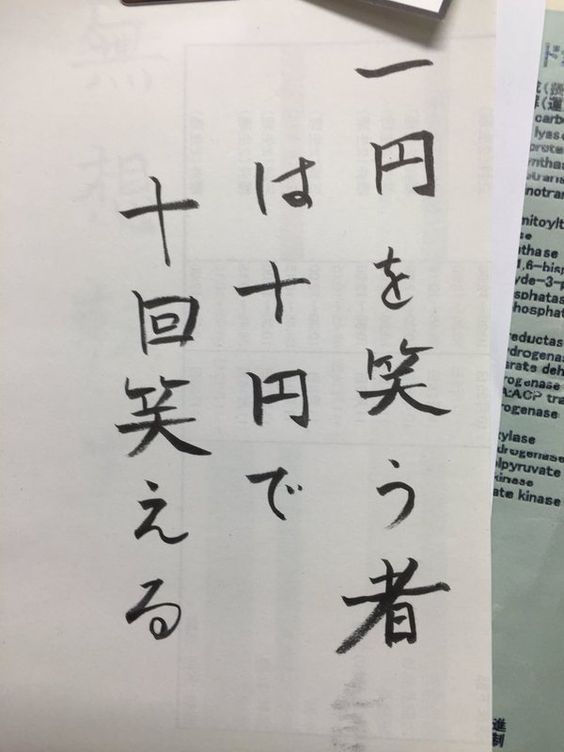 一円を笑う者
は十円で
十回笑える
無
ド
carb
lyase
prote
ntha
notran
mitoylt
se
thase
1,6-bis
yde-3-p
sphatas
phosphat
reductas
drogena
arate deh
rogenase
A:ACP tra
rogenase
xylase
drogenase
lpyruvate
kinase
ate kinase
進
制